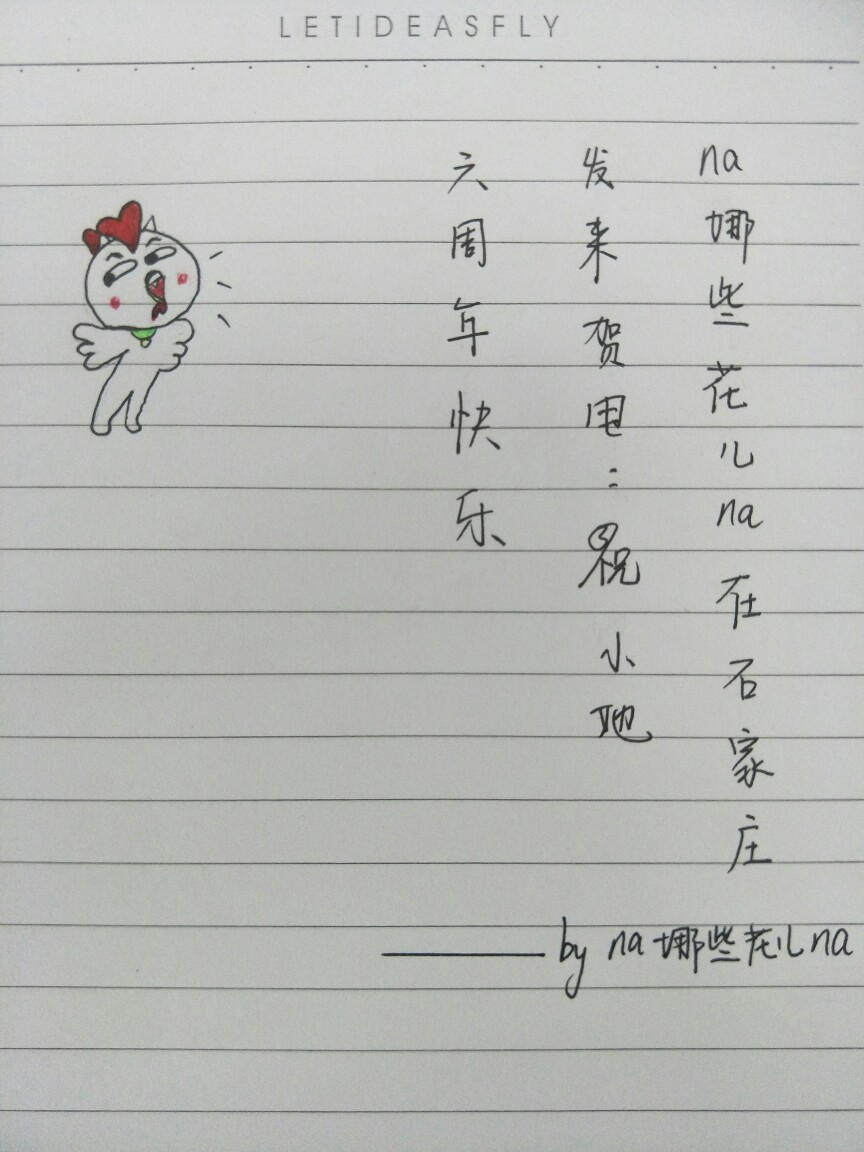 LETIDEASFLY
na娜些花儿na在石家庄
发来贺电：祝小地
六周年快乐
——by na娜些花儿na